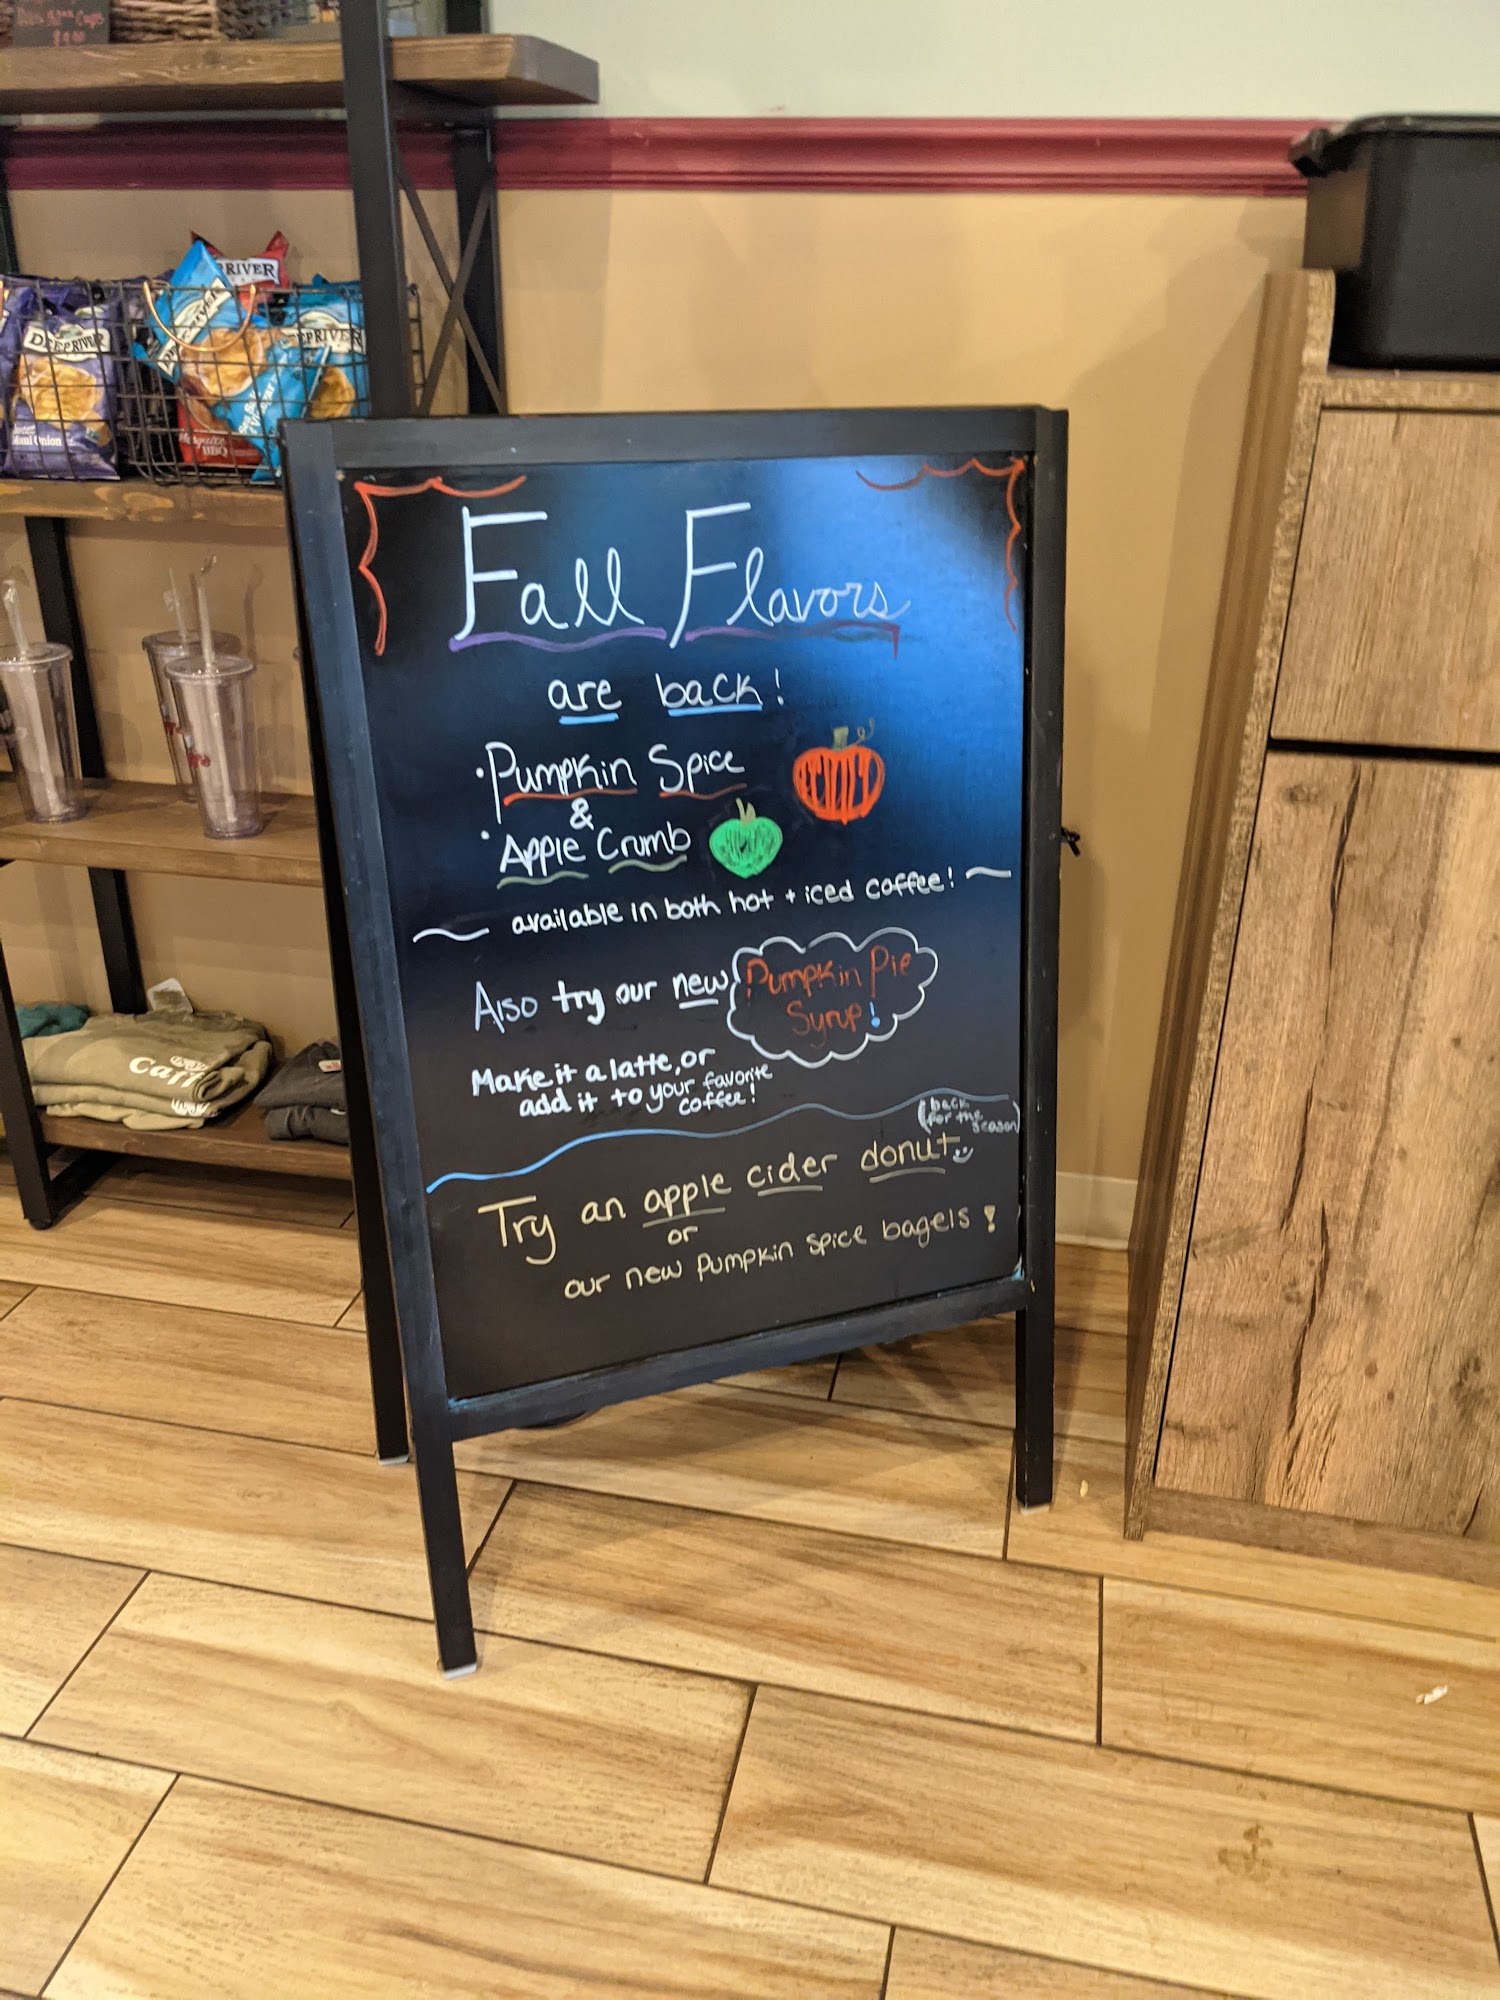 $9.00
DEEP RIVER
RIVER
DEEP RIVER
Maui Onion
Mesquite
BBQ
Fall Flavors
are back!
• Pumpkin Spice
&
• Apple Crumb
available in both hot + iced coffee!
Also try our new Pumpkin Pie
Syrup!
Make it a latte, or
add it to your favorite
coffee!
(back
for the
season)
Try an apple cider donut
or
our new pumpkin spice bagels!